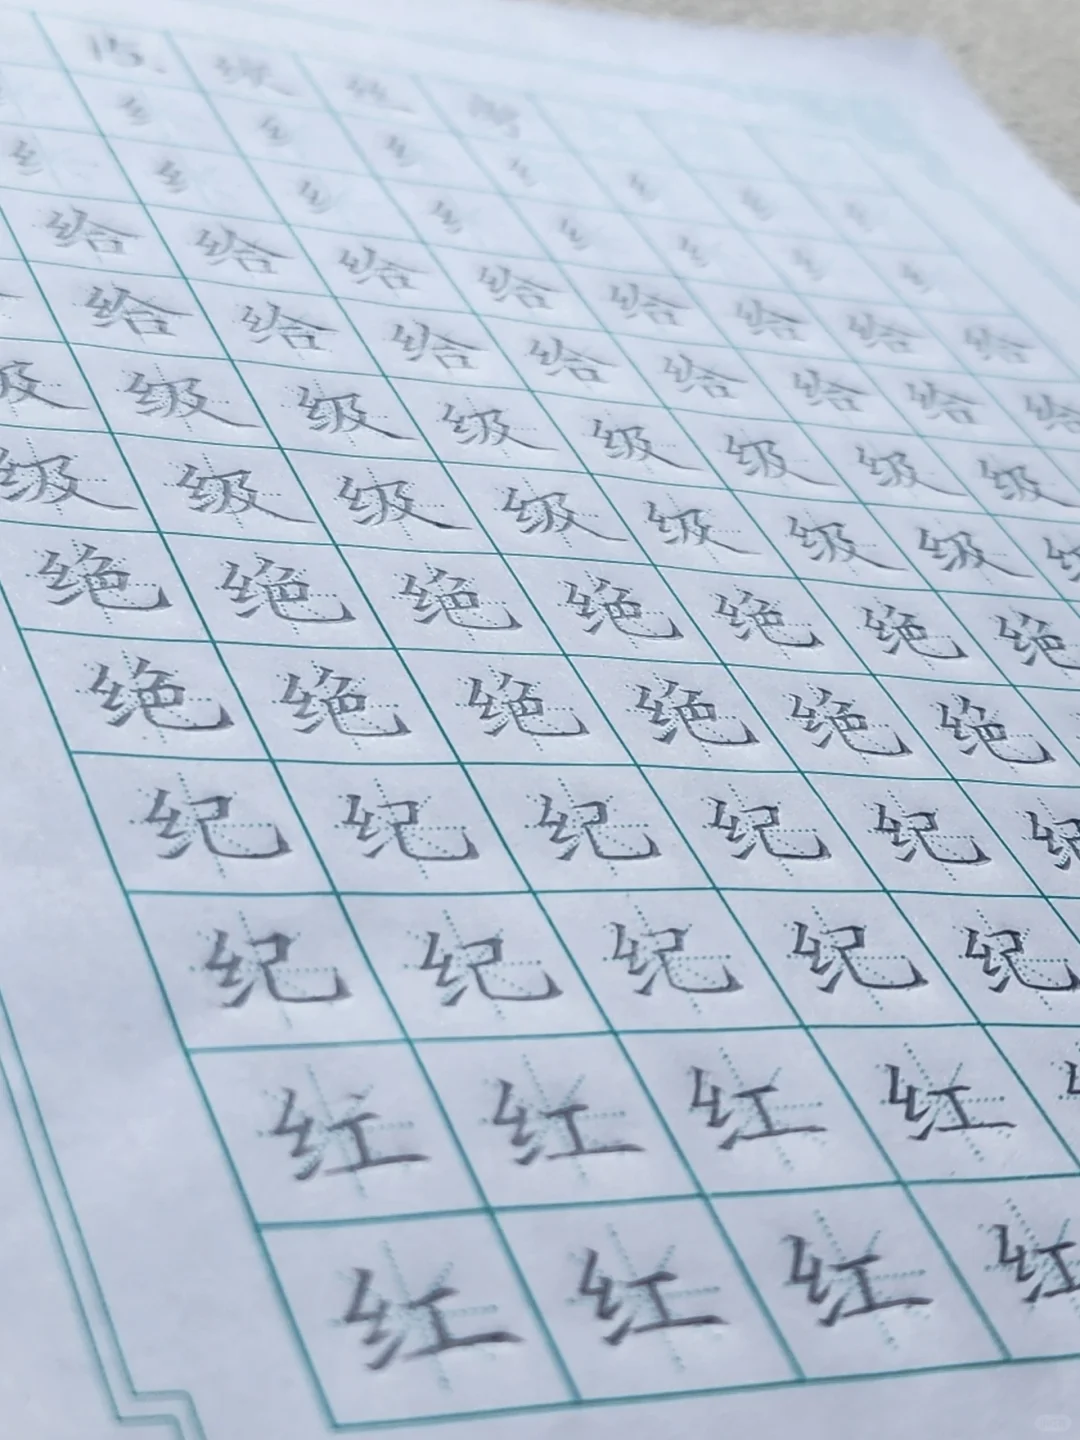 纟纟纟纟纟纟纟
纟纟纟纟纟纟纟纟
给给给给给给给给
给给给给给给给给
级级级级级级级级
级级级级级级级
绝绝绝绝绝绝绝
绝绝绝绝绝绝
纪纪纪纪纪纪
纪纪纪纪纪
红红红红
红红红红